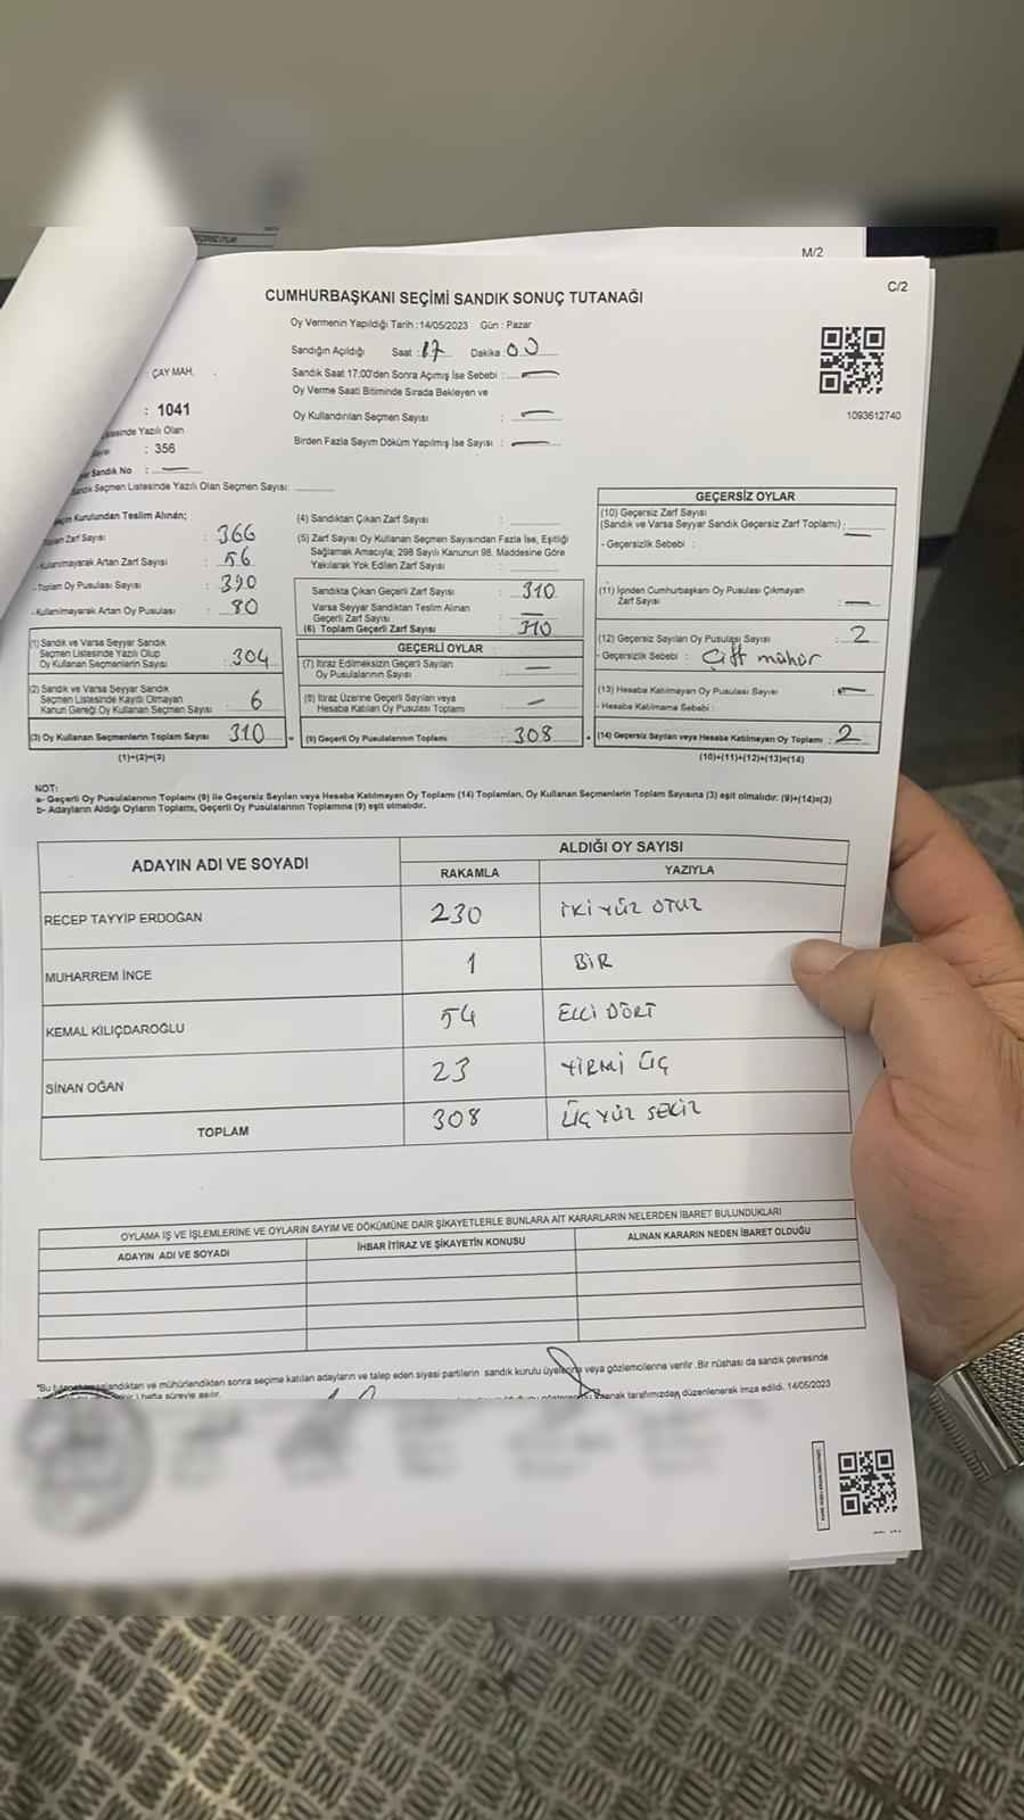 M/2
C/2
CUMHURBAŞKANI SEÇİMİ SANDIK SONUÇ TUTANAĞI
Oy Vermenin Yapıldığı Tarih : 14/05/2023 Gün : Pazar
Sandığın Açıldığı Saat : 17 Dakika : 00
Sandık Saat 17:00'den Sonra Açılmış İse Sebebi : —
Oy Verme Saati Bitiminde Sırada Bekleyen ve
Oy Kullandırılan Seçmen Sayısı : —
Birden Fazla Sayım Döküm Yapılmış İse Sayısı : —
1093612740
: ÇAY MAH.
: 1041
Yazılı Olan
: 356
Sandık No : —
Seçmen Listesinde Yazılı Olan Seçmen Sayısı:
Kurulundan Teslim Alınan;
Zarf Sayısı : 366
Artan Zarf Sayısı : 56
-Toplam Oy Pusulası Sayısı : 390
-Kullanılmayarak Artan Oy Pusulası : 80
(1) Sandık ve Varsa Seyyar Sandık
Seçmen Listesinde Yazılı Olup
Oy Kullanan Seçmenlerin Sayısı : 304
(2) Sandık ve Varsa Seyyar Sandık
Seçmen Listesinde Kayıtlı Olmayan
Kanun Gereği Oy Kullanan Seçmen Sayısı : 6
(3) Oy Kullanan Seçmenlerin Toplam Sayısı : 310
(1)+(2)=(3)
(4) Sandıktan Çıkan Zarf Sayısı :
(5) Zarf Sayısı Oy Kullanan Seçmen Sayısından Fazla İse, Eşitliği
Sağlamak Amacıyla; 298 Sayılı Kanunun 98. Maddesine Göre
Yakılarak Yok Edilen Zarf Sayısı :
Sandıkta Çıkan Geçerli Zarf Sayısı : 310
Varsa Seyyar Sandıktan Teslim Alınan
Geçerli Zarf Sayısı : —
(6) Toplam Geçerli Zarf Sayısı : 310
GEÇERLİ OYLAR
(7) İtiraz Edilmeksizin Geçerli Sayılan
Oy Pusulalarının Sayısı : —
(8) İtiraz Üzerine Geçerli Sayılan veya
Hesaba Katılan Oy Pusulası Toplamı : —
(9) Geçerli Oy Pusulalarının Toplamı : 308
GEÇERSİZ OYLAR
(10) Geçersiz Zarf Sayısı
(Sandık ve Varsa Seyyar Sandık Geçersiz Zarf Toplamı) : —
- Geçersizlik Sebebi :
(11) İçinden Cumhurbaşkanı Oy Pusulası Çıkmayan
Zarf Sayısı : —
(12) Geçersiz Sayılan Oy Pusulası Sayısı : 2
- Geçersizlik Sebebi : Çift mühür
(13) Hesaba Katılmayan Oy Pusulası Sayısı : —
- Hesaba Katılmama Sebebi :
(14) Geçersiz Sayılan veya Hesaba Katılmayan Oy Toplamı : 2
(10)+(11)+(12)+(13)=(14)
NOT:
a- Geçerli Oy Pusulalarının Toplamı (9) ile Geçersiz Sayılan veya Hesaba Katılmayan Oy Toplamı (14) Toplamları, Oy Kullanan Seçmenlerin Toplam Sayısına (3) eşit olmalıdır. (9)+(14)=(3)
b- Adayların Aldığı Oyların Toplamı, Geçerli Oy Pusulalarının Toplamına (9) eşit olmalıdır.
ADAYIN ADI VE SOYADI
ALDIĞI OY SAYISI
RAKAMLA YAZIYLA
RECEP TAYYİP ERDOĞAN 230 İKİ YÜZ OTUZ
MUHARREM İNCE 1 BİR
KEMAL KILIÇDAROĞLU 54 ELLİ DÖRT
SİNAN OĞAN 23 YİRMİ ÜÇ
TOPLAM 308 ÜÇ YÜZ SEKİZ
OYLAMA İŞ VE İŞLEMLERİNE VE OYLARIN SAYIM VE DÖKÜMÜNE DAİR ŞİKAYETLERLE BUNLARA AİT KARARLARIN NELERDEN İBARET BULUNDUKLARI
ADAYIN ADI VE SOYADI İHBAR İTİRAZ VE ŞİKAYETİN KONUSU ALINAN KARARIN NEDEN İBARET OLDUĞU
ve mühürlendikten sonra seçime katılan adayların ve talep eden siyasi partilerin sandık kurulu üyelerine veya gözlemcilerine verilir. Bir nüshası da sandık çevresinde
tarafımızdan düzenlenerek imza edildi. 14/05/2023